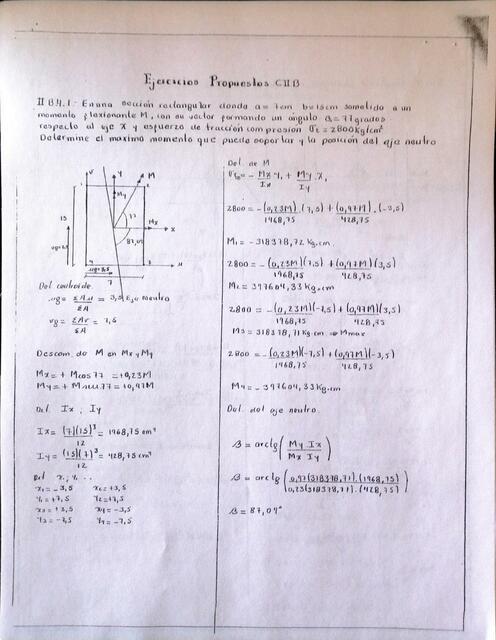 Ejercicios Propuestos CIIB
II B4.1- En una sección rectangular donde a= 7cm b=15cm sometido a un
momento flexionante M, con su vector formando un ángulo θ=77grados
respecto al eje X y esfuerzo de tracción compresion σt=2800Kg/cm²
Determine el maximo momento que puede soportar y la posición del eje neutro
V
Y
M
1
2
My
77
15
Mx
X
87,04
vg=7,5
4
3
u
ug=3,5
7
Del centroide
ug = ΣAu = 3,5 Eje neutro
ΣA
vg = ΣAv = 7,5
ΣA
Descom. do M en Mx y My
Mx=+ Mcos77 =+0,23M
My=+ Msen77=+0,97M
Del Ix , Iy
Ix= (7)(15)³ = 1968,75 cm⁴
12
Iy= (15)(7)³ = 428,75 cm⁴
12
Del x, y ...
x1=-3,5 x2=+3,5
y1=+7,5 y2=+7,5
x3=+3,5 x4=-3,5
y3=-7,5 y4=-7,5
Del de M
= - Mx Y1 + My X1
Ix Iy
2800= -(0,23M)(7,5) + (0,97M).(-3,5)
1968,75 428,75
M1=-318378,72 Kg.cm.
2800= -(0,23M)(7,5) + (0,97M)(3,5)
1968,75 428,75
M2=397604,33Kg.cm
2800= -(0,23M)(-7,5) + (0,97M)(3,5)
1968,75 428,75
M3=318378,71Kg.cm => Mmax
2800= -(0,23M)(-7,5) + (0,97M)(-3,5)
1968,75 428,75
M4=-397604,33Kg.cm
Del del eje neutro.
β=arctg(My Ix)
Mx Iy
β=arctg(0,97(318378,71).(1968,75))
0,23(318378,71).(428,75)
β=87,04°